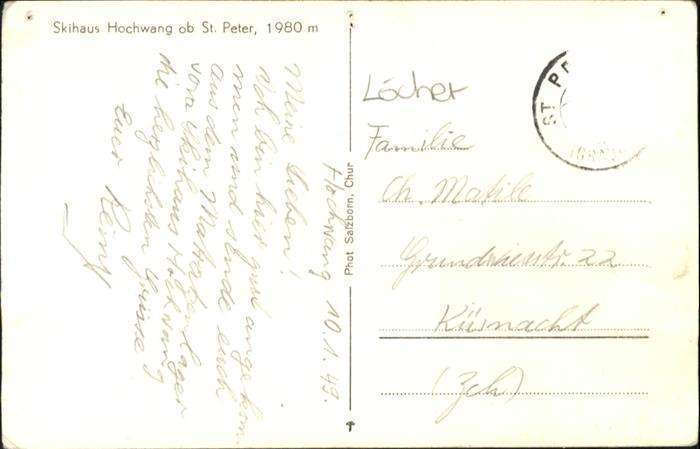 Skihaus Hochwang ob St. Peter, 1980 m
Hochwang 10.1.49.
Meine Lieben!
Ich bin hier gut angekom
men und sende euch
aus dem Matratzenlager
vom Skihaus Hochwang
die herzlichsten Grüsse
Euer René
Phot Salzborn, Chur
ST. P
Löcher
Familie
Ch. Matile
22
Küsnacht
(Zch)